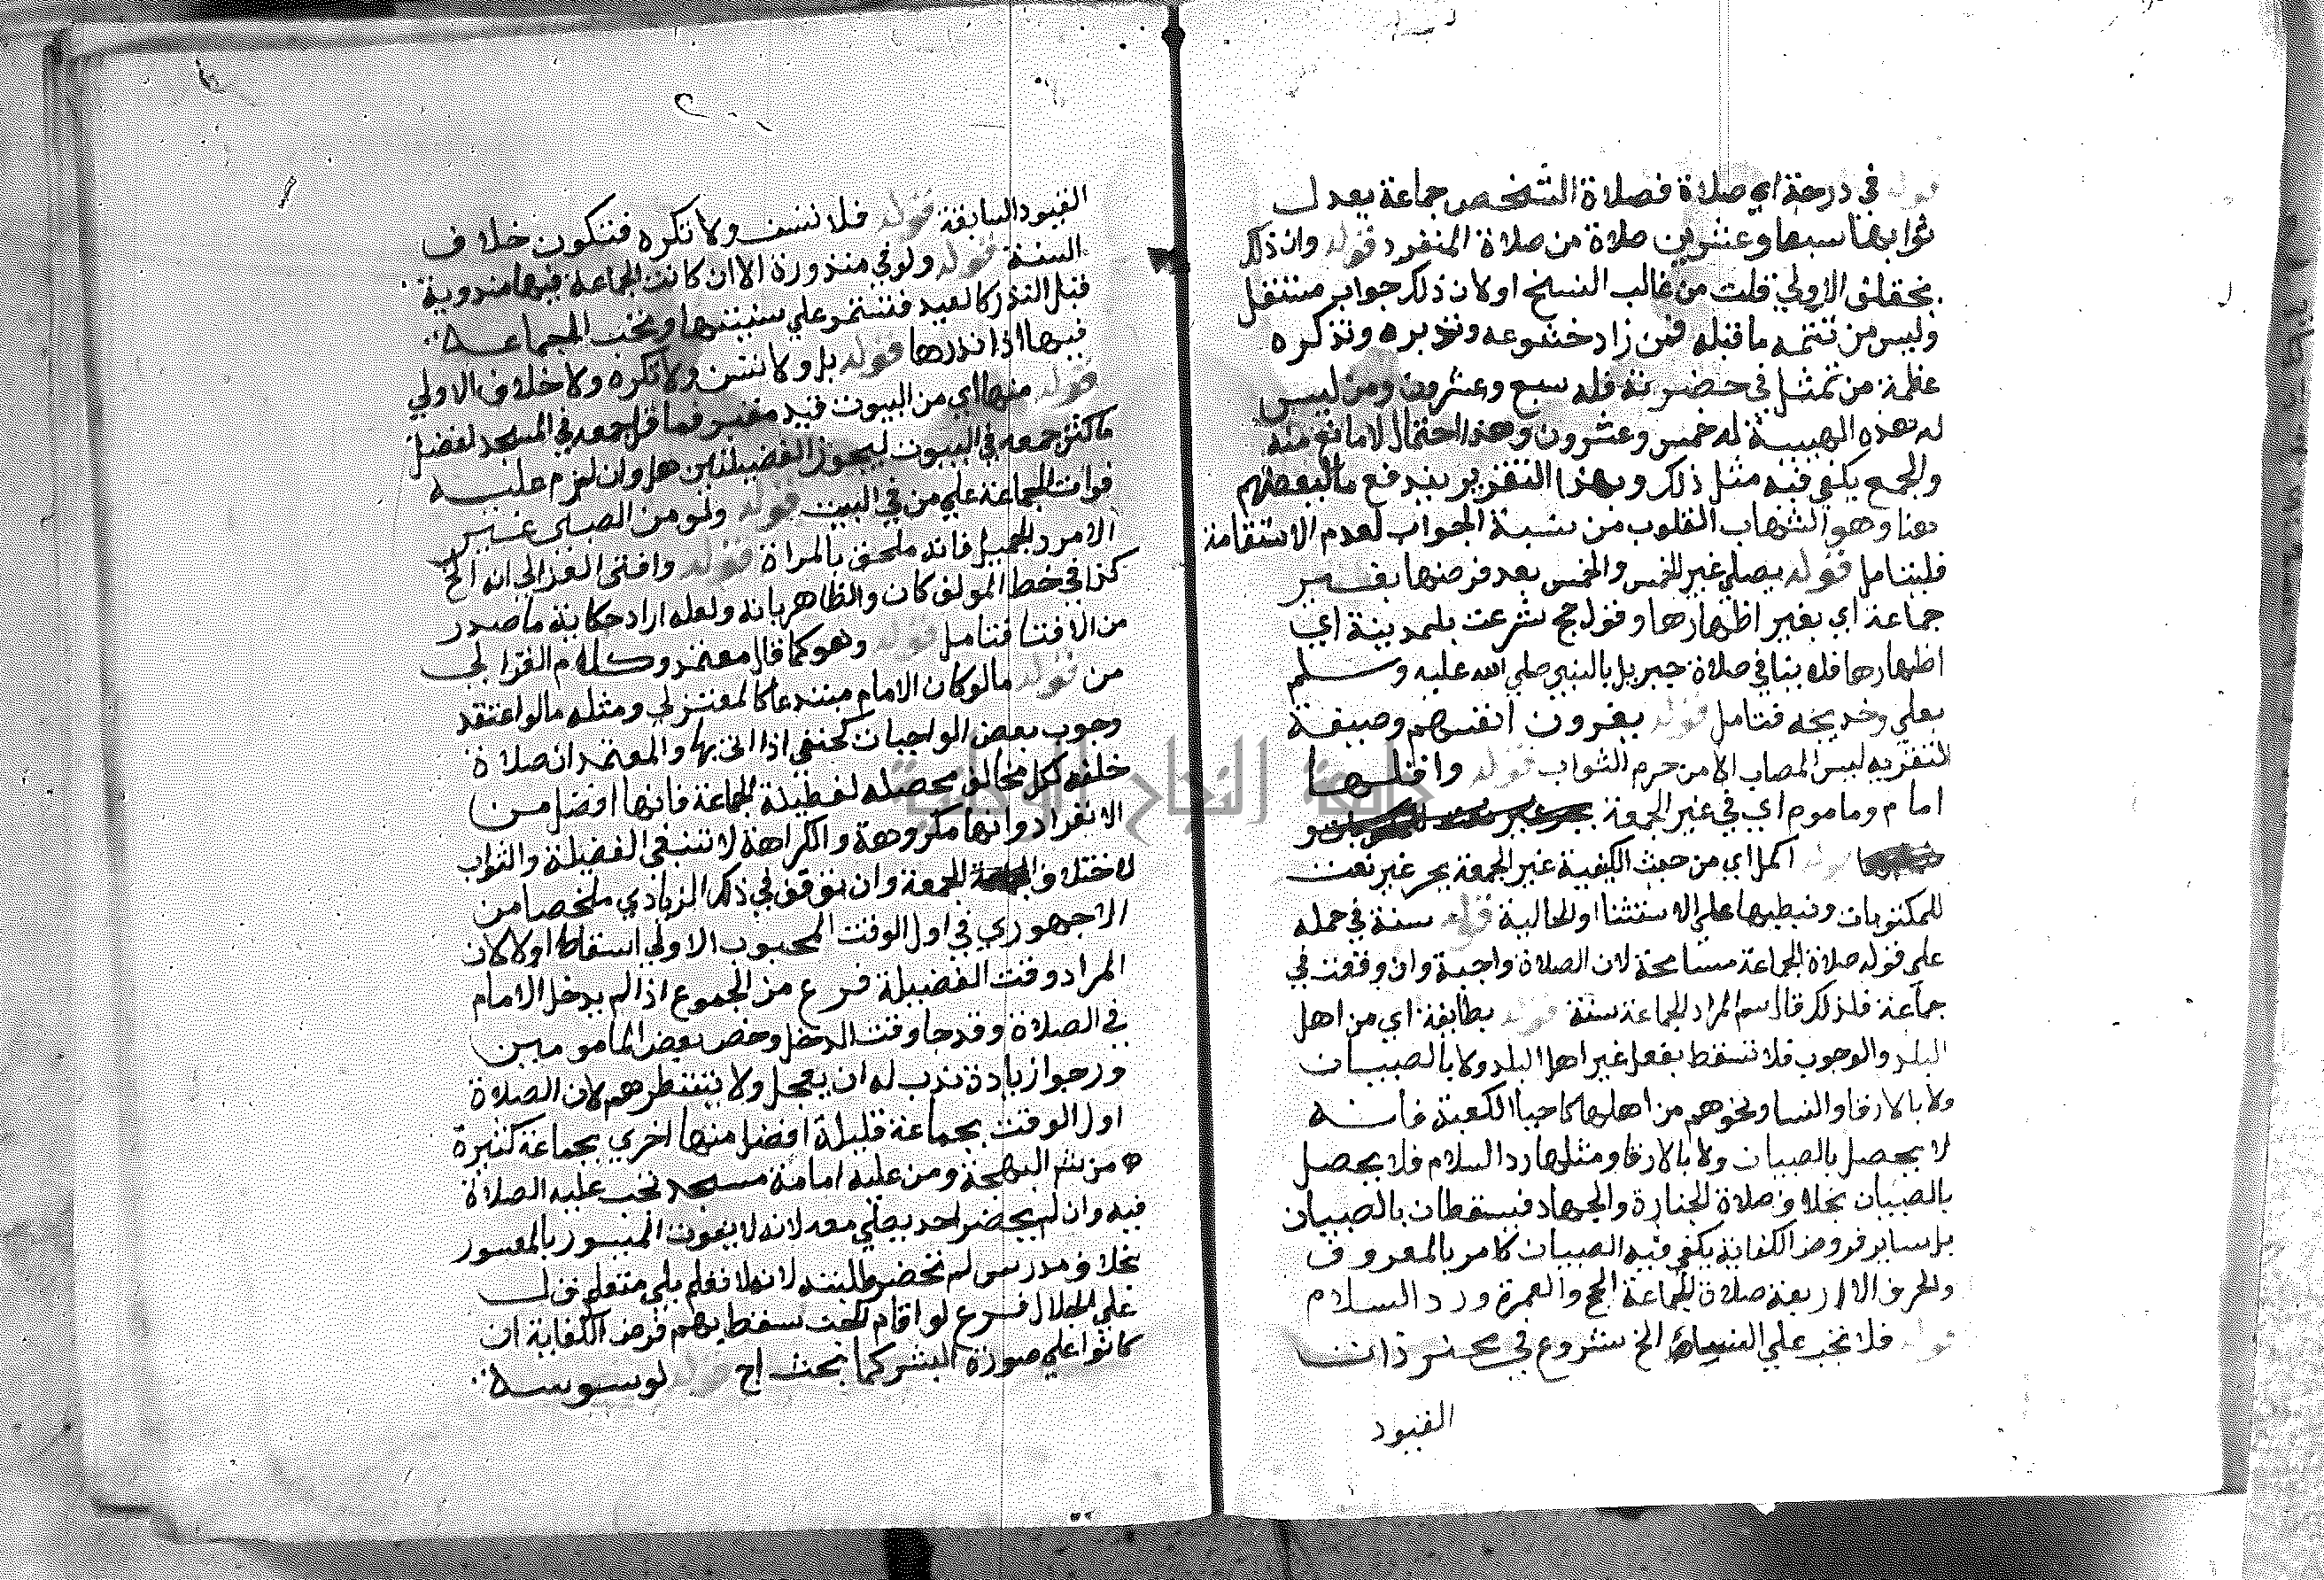 قوله في درجة اي صلاة فصلاة الشخص جماعة يعدل
ثوابها سبعا وعشرين صلاة من صلاة المنفرد قوله وان ذلك
الاولي قلت من غالب النسخ او لان ذلك جواب مستقل
وليس من تتمة ما قبله فمن زاد خشوعه وتدبره وتذكره
عظمة من تمثل في حضرته فله سبع وعشرون ومن ليس
له هذه الهيبة له خمس وعشرون وهذا احتمال لا مانع منه
والجمع يكفي فيه مثل ذلك وبهذا التقرير يندفع ما لبعضهم
هنا وهو الشهاب القلوب من نسبة الجواب لعدم الاستقامة
فليتامل قوله يصلي غير الخمس والخمس بعد فرضها بغير
جماعة اي بغير اظهارها وقول حج شرعت بالمدينة اي
اظهارها فلا ينافي صلاة جبريل بالنبي صلي الله عليه وسلم
بعلي وخديجة فتامل قوله يعزون انفسهم وصيغة
التعزية ليس المصاب الا من حرم الثواب قوله واقلها
امام وماموم اي في غير الجمعة
قوله اكمل اي من حيث الكيفية غير الجمعة بجر غير نعت
للمكتوبات ونصبها علي الاستثنا او الحالية قوله سنة في حمله
علي قوله صلاة الجماعة مسامحة لان الصلاة واجبة وان وقعت في
جماعة فلذلك قال سم المراد الجماعة سنة قوله بطائفة اي من اهل
البلد والوجوب فلا تسقط بفعل غير اهل البلد ولا بالصبيان
ولا بالارقا والنسا ونحوهم من اهلها كاحيا الكعبة فانه
لا يحصل بالصبيان ولا بالارقا ومثلها رد السلام فلا يحصل
بالصبيان بخلاف صلاة الجنازة والجهاد فيسقطان بالصبيان
بل ساير فروض الكفاية يكفي فيه الصبيان كامر بالمعروف
والحرف الا اربعة صلاة الجماعة الحج والعمرة ورد السلام
قوله فلا تجب علي النساء الخ شروع في محترزات
القيود
القيود السابقة قوله فلا تسن ولا تكره فتكون خلاف
السنة قوله ولو في منذورة الا ان كانت الجماعة فيها مندوبة
قبل النذر كالعيد فتستمر علي سنيتها وتجب الجماعة
فيها اذا نذرها قوله بل ولا تسن ولا تكره ولا خلاف الاولي
قوله منها اي من البيوت قيد معتبر فما قل جمعه في المسجد افضل
ما كثر جمعه في البيوت ليحوز الفضيلتين هل وان لزم عليه
فوات الجماعة علي من في البيت قوله ولو من الصبي غير
الامرد الجميل فانه ملحق بالمراة قوله وافتي الغزالي انه الخ
كذا في خط المولف كان والظاهر بانه ولعله اراد حكاية ما صدر
من الافتا فتامل قوله وهو كما قال معتمد وكلام الغزالي
من قوله ما لو كان الامام مبتدعا كالمعتزلي ومثله ما لو اعتقد
وجوب بعض الواجبات كحنفي اذا اتي بها والمعتمد ان صلاة
خلف كل مخالف محصله لفضيلة الجماعة فانها افضل من
الانفراد وانها مكروهة والكراهة لا تنفي الفضيلة والثواب
لاختلاف الجهة وان توقف في ذلك الزيادي ملخصا من
الاجهوري في اول الوقت المحبوب الاولي اسقاط اولا لان
المراد وقت الفضيلة فرع من المجموع اذا لم يدخل الامام
في الصلاة وقد جا وقت الدخول وحضر بعض المامومين
ورجوا زيادة ندب له ان يعجل ولا ينتظرهم لان الصلاة
اول الوقت بجماعة قليلة افضل منها اخري بجماعة كثيرة
ه من شرح البهجة ومن عليه امامة مسجد تجب عليه الصلاة
فيه وان لم يحضر احد يصلي معه لانه لا يفوت الميسور بالمعسور
بخلاف مدرس لم تحضر طلبته لانه لا تعلم بلي متعلم ق ل
علي الجلال فرع لو اقام الجن سقط بهم فرض الكفاية ان
كانوا علي صورة البشر كما بحث اج قوله لوسوسة